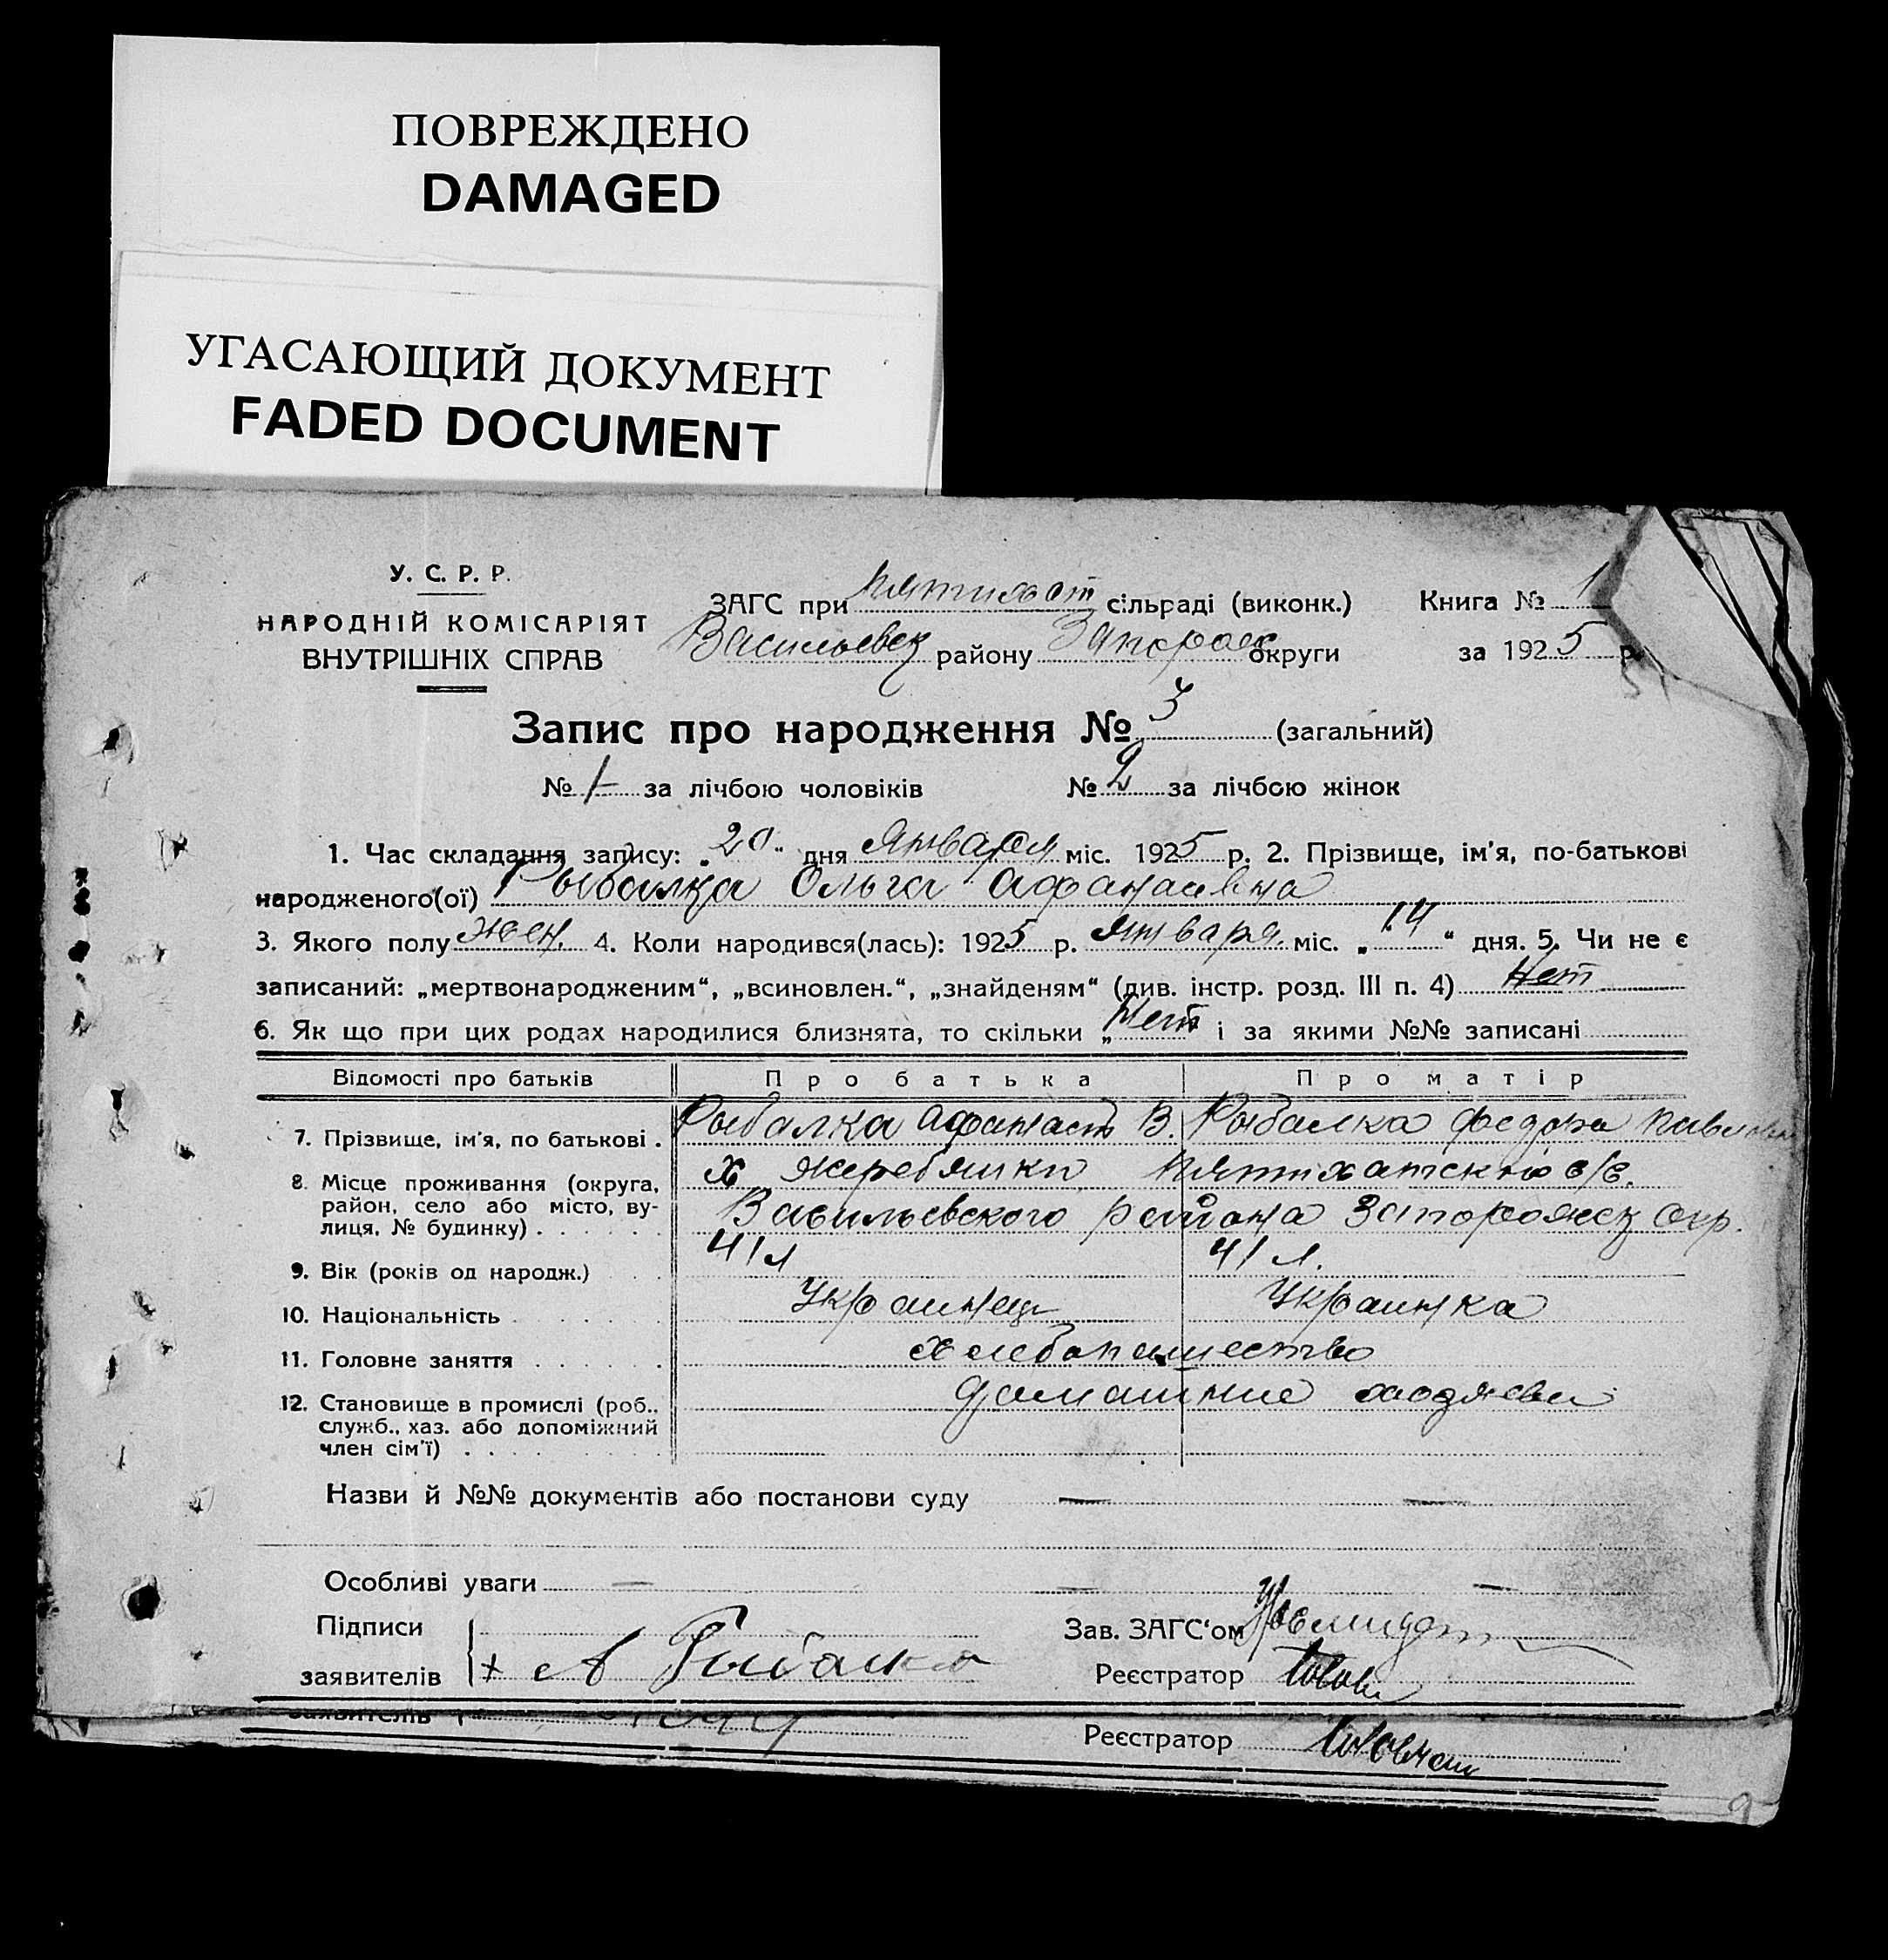 ПОВРЕЖДЕНО
DAMAGED
УГАСАЮЩИЙ ДОКУМЕНТ
FADED DOCUMENT
У. С. Р. Р.
НАРОДНІЙ КОМІСАРІЯТ
ВНУТРІШНІХ СПРАВ
ЗАГС при Пятихат сільраді (виконк.) Книга № 1
Васильевск району Запорож округи за 1925 р.
Запис про народження № 3 (загальний)
№ 1 за лічбою чоловіків № 2 за лічбою жінок
1. Час складання запису: „20“ дня Января міс. 1925 р. 2. Прізвище, ім'я, по-батькові
народженого(ої) Рыбалка Ольга
3. Якого полу жен. 4. Коли народився(лась): 1925 р. Января. міс. „14“ дня. 5. Чи не є
записаний: „мертвонародженим“, „всиновлен.“, „знайденям“ (див. інстр. розд. III п. 4) Нет
6. Як що при цих родах народилися близнята, то скільки „Нет“ і за якими №№ записані
Відомості про батьків Про батька Про матір
7. Прізвище, ім'я, по батькові . Рыбалка Афанасий В. Рыбалка
8. Місце проживання (округа, х Жеребянки Пятихатской с/с.
район, село або місто, ву-
лиця, № будинку) . . . . . . Васильевского района Запорожск окр.
9. Вік (років од народж.) 41 л 41 л.
10. Національність Украинец Украинка
11. Головне заняття . . . . . . Хлебопашество
12. Становище в промислі (роб., домашние хозяева
служб., хаз. або допоміжний
член сім'ї) . . . . .
Назви й №№ документів або постанови суду — —
Особливі уваги — — —
Підписи Зав. ЗАГС'ом
заявителів + А Рыбалка Реєстратор
заявителів Реєстратор
9